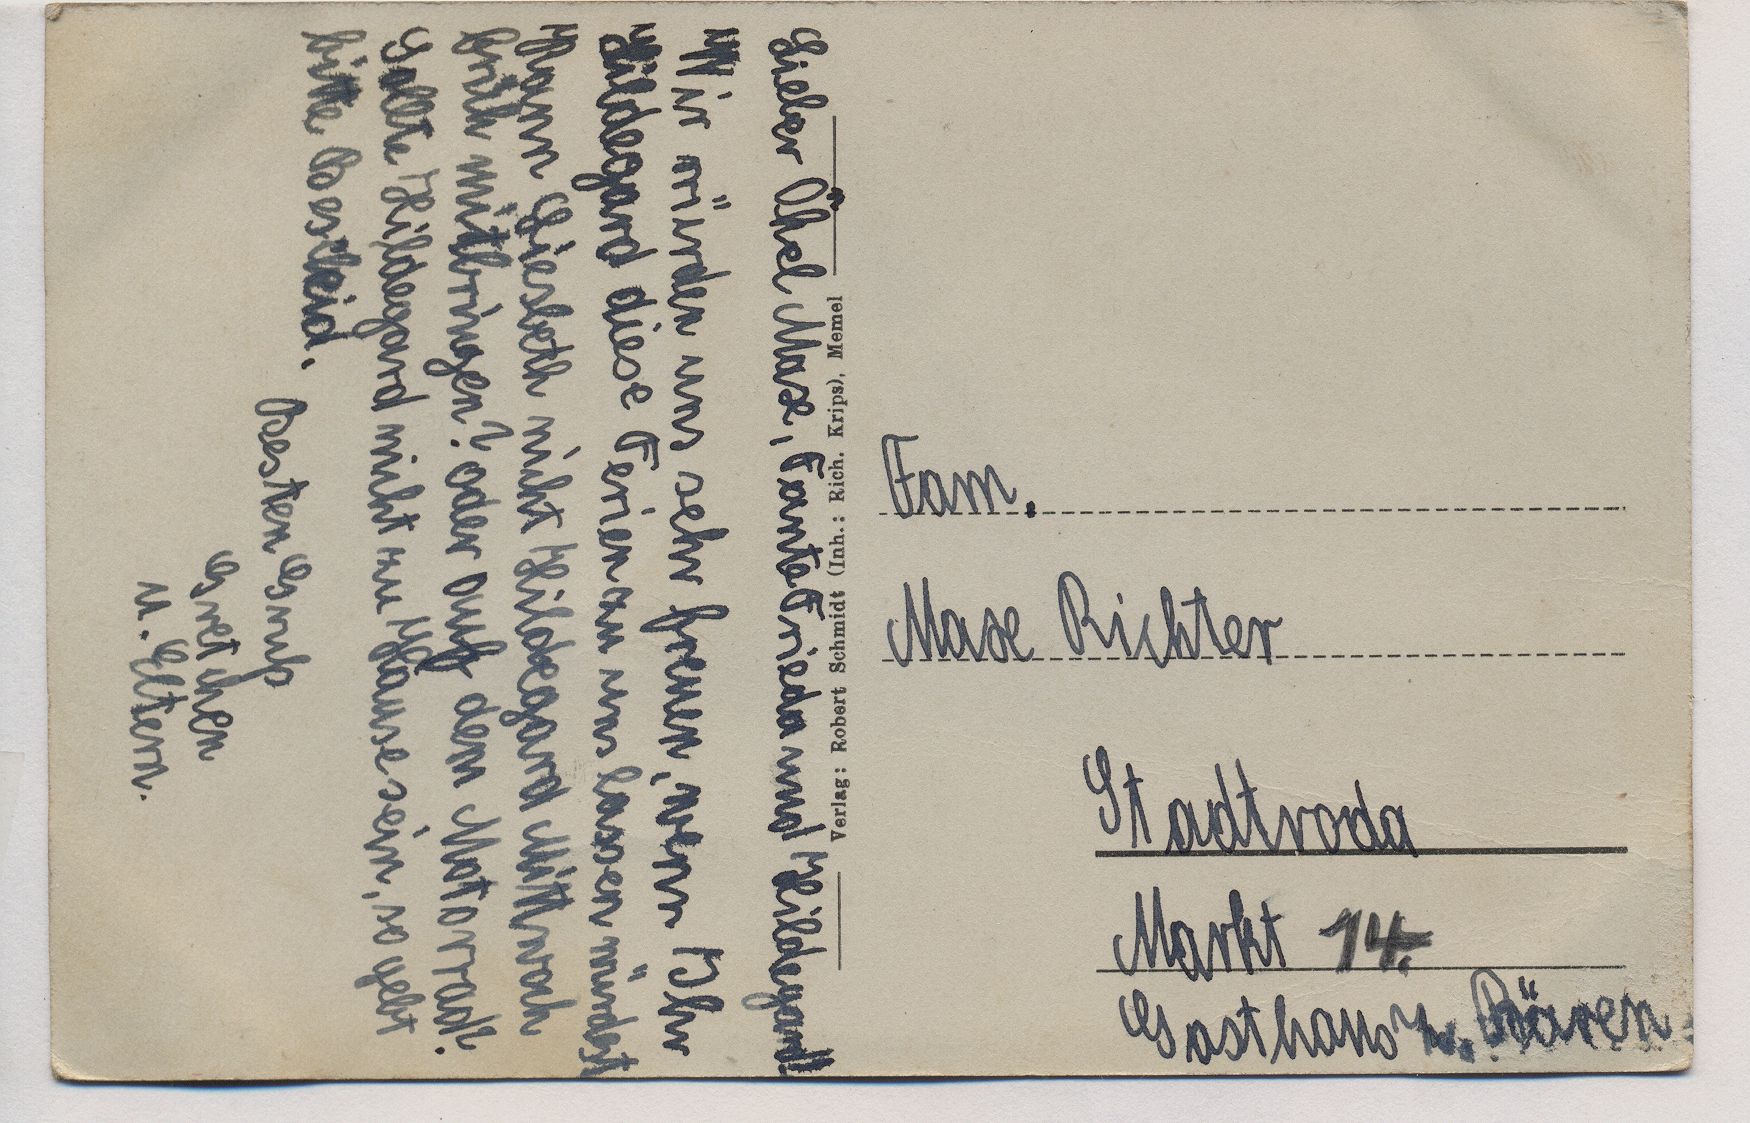 Lieber Ohel Maxe, Tante Frieda und Hildegard!
Wir würden uns sehr freuen, wenn Ihr
Hildegard diese Ferien zu uns lassen würdest
Kann Liesbeth nicht Hildegard Mittwoch
früh mitbringen? oder auf dem Motorrad.
Sollte Hildegard nicht zu Hause sein, so gebt
bitte Bescheid.
Besten Gruß
Gretchen
u. Eltern.
Verlag: Robert Schmidt (Inh.: Rich. Krips), Memel
Fam.
Maxe Richter
Stadtroda
Markt 14.
Gasthaus z. Bären